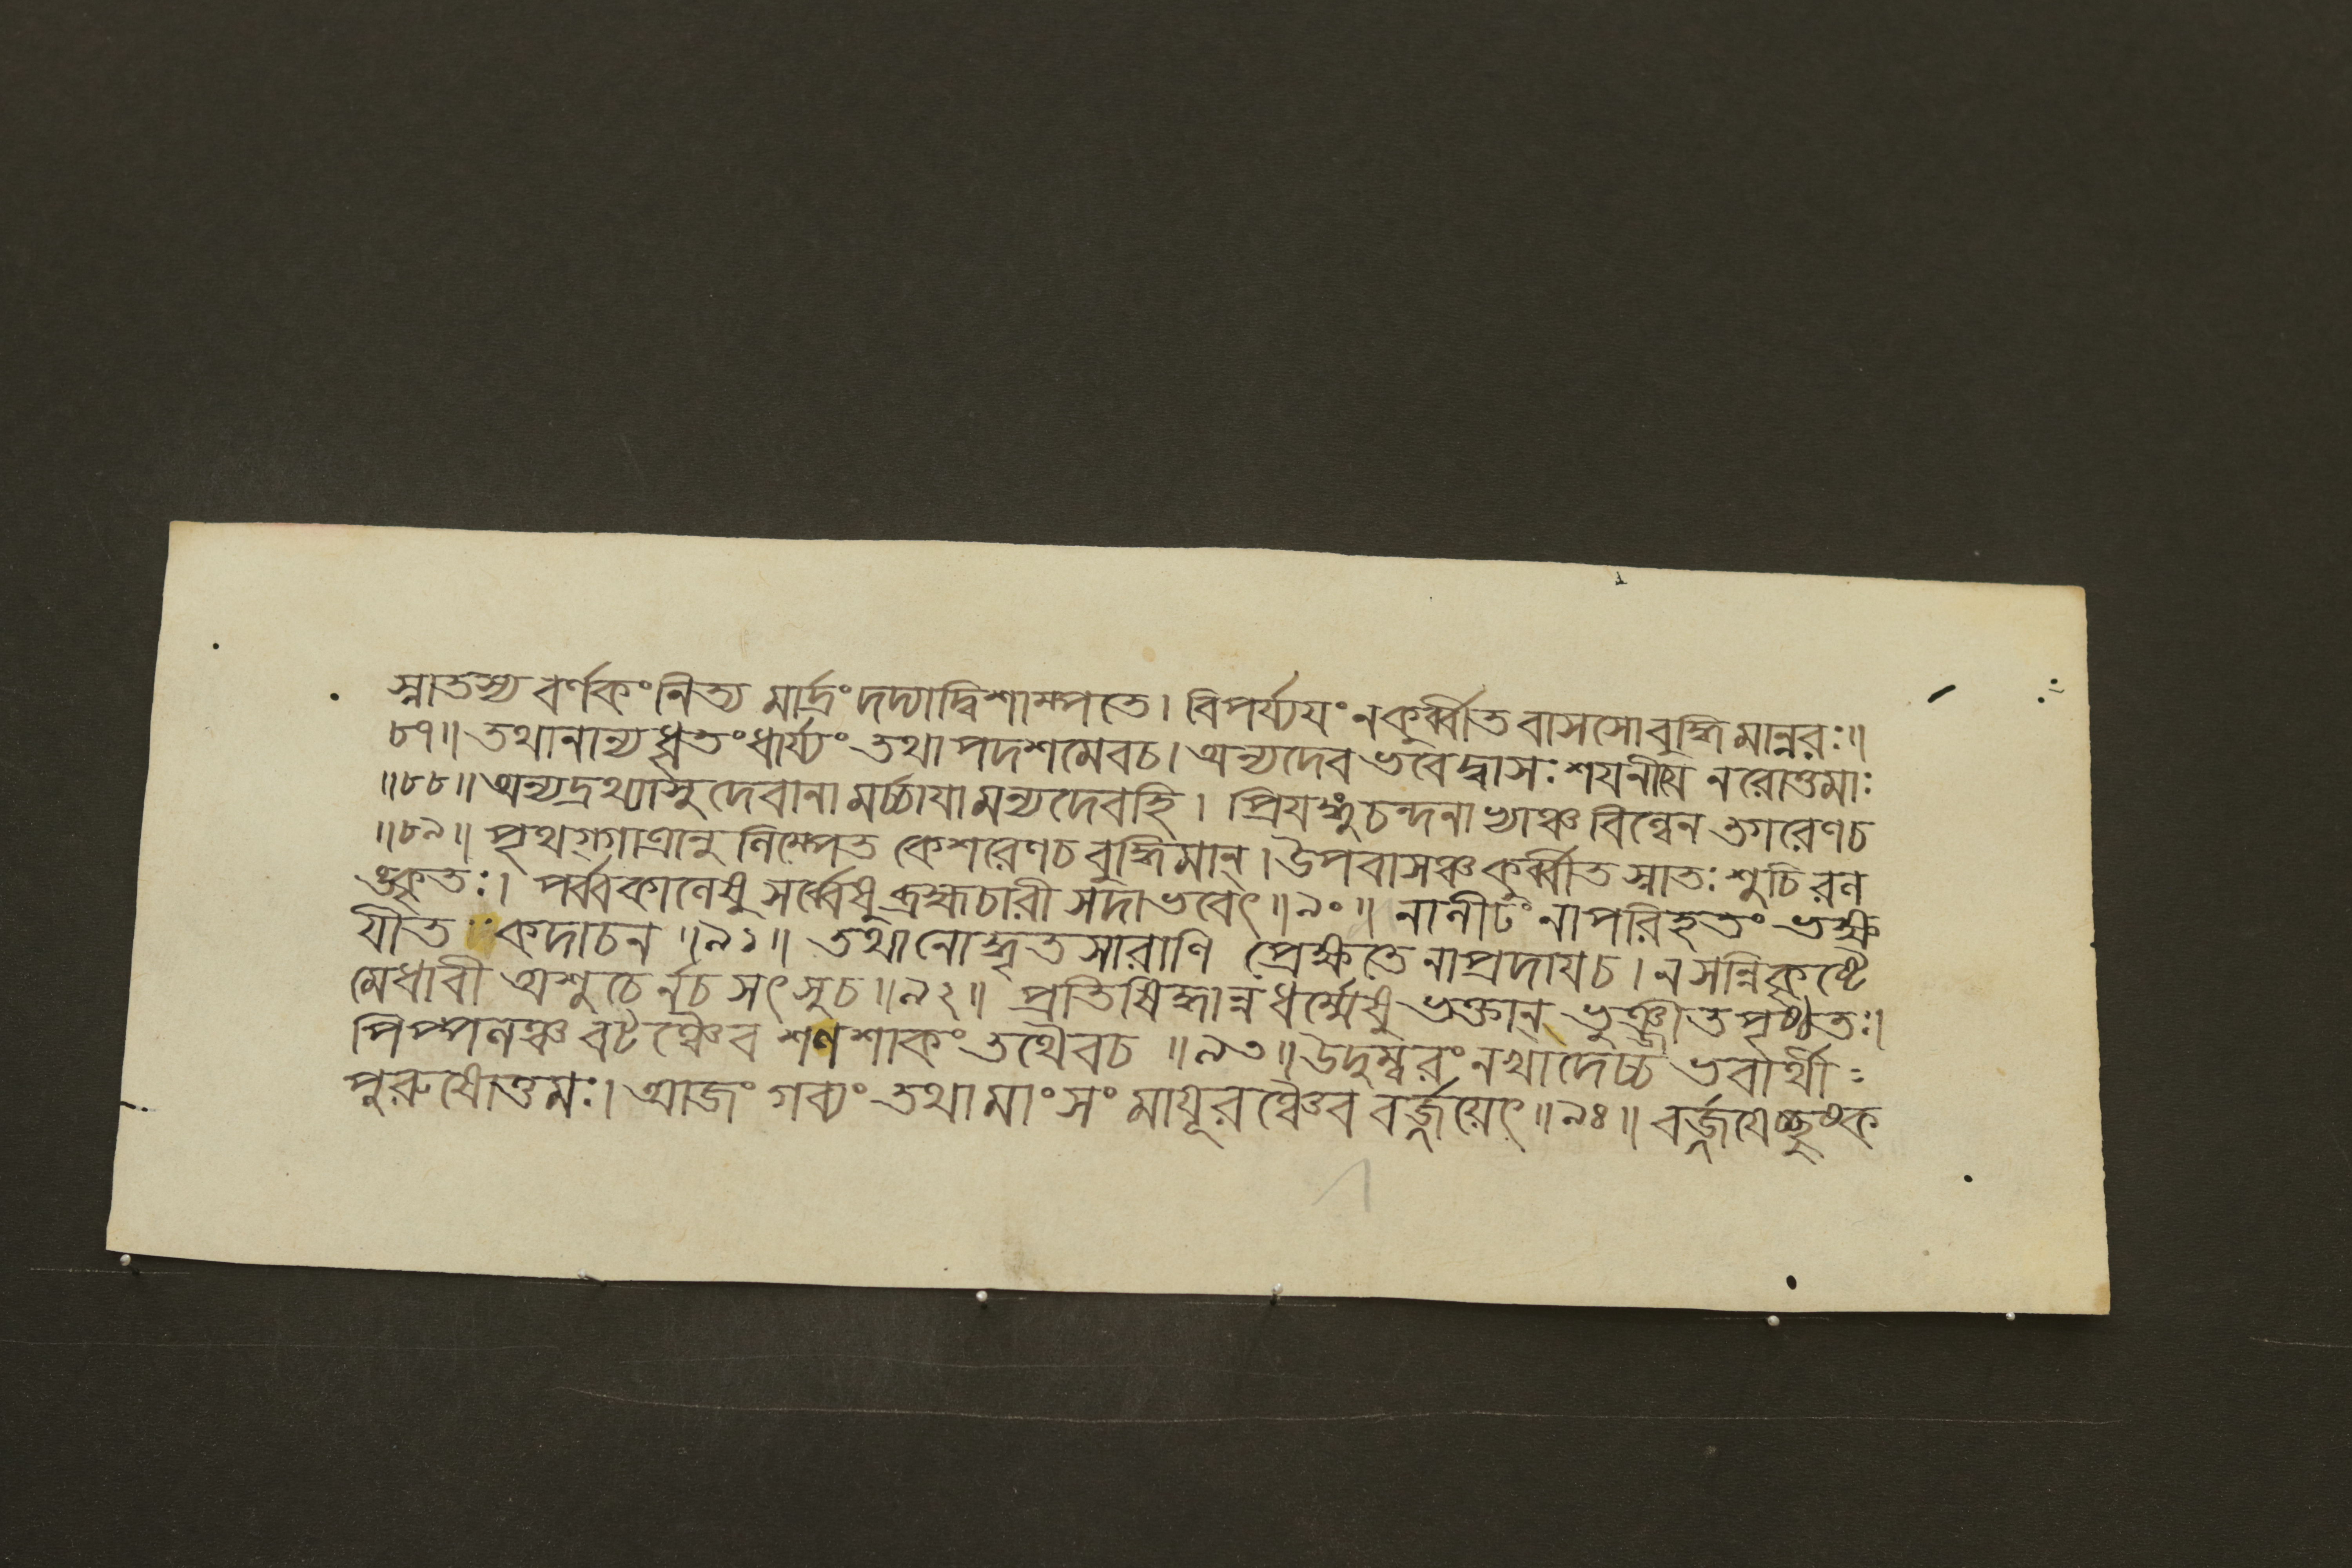 স্নাতস্য বর্ণকং নিত্য মার্দ্রং দদ্যাদ্বিশাম্পতে। বিপর্য্যযং নকুর্ব্বীত বাসসোবুদ্ধিমান্নরঃ॥
৮৭॥ তথানান্যধৃতংধার্য্যং তথাপদশমেবচ। অন্যদেব ভবেদ্বাসঃ শযনীযে নরোত্তমাঃ
॥৮৮॥ অন্যদ্রথ্যাসুদেবানা মর্চ্চাযামন্যদেবহি। প্রিযঙ্গুচন্দনাভ্যাঞ্চ বিল্বেন তগরেণচ
॥৮৯॥ পৃথগ্গাত্রানু লিম্পেত কেশরেণচ বুদ্ধিমান্। উপবাসঞ্চ কুর্ব্বীত স্নাতঃ শুচিরল
ঙ্কৃতঃ। পর্ব্বকালেষু সর্ব্বেষু ব্রহ্মচারী সদাভবেৎ॥৯০॥ নালীঢং নাপরিহৃতং ভক্ষ
যীত কদাচন॥৯১॥ তথানোদ্ধৃতসারাণি প্রেক্ষতে নাপ্রদাযচ। ন সন্নিকৃষ্টে
মেধাবী অশুচের্নচ সৎসুচ॥৯২॥ প্রতিষিদ্ধান্নধর্ম্মেষু ভক্তান্ ভুঞ্জীত পৃষ্ঠতঃ।
পিপ্পলঞ্চ বটঞ্চৈব শণশাকং তথৈবচ॥৯৩॥ উদুম্বরং নখাদেচ্চ ভবার্থী
পুরুষোত্তমঃ। আজং গব্যং তথামাংসং মাযূরঞ্চৈব বর্জ্জয়েৎ॥৯৪॥ বর্জ্জযেচ্ছুষ্ক